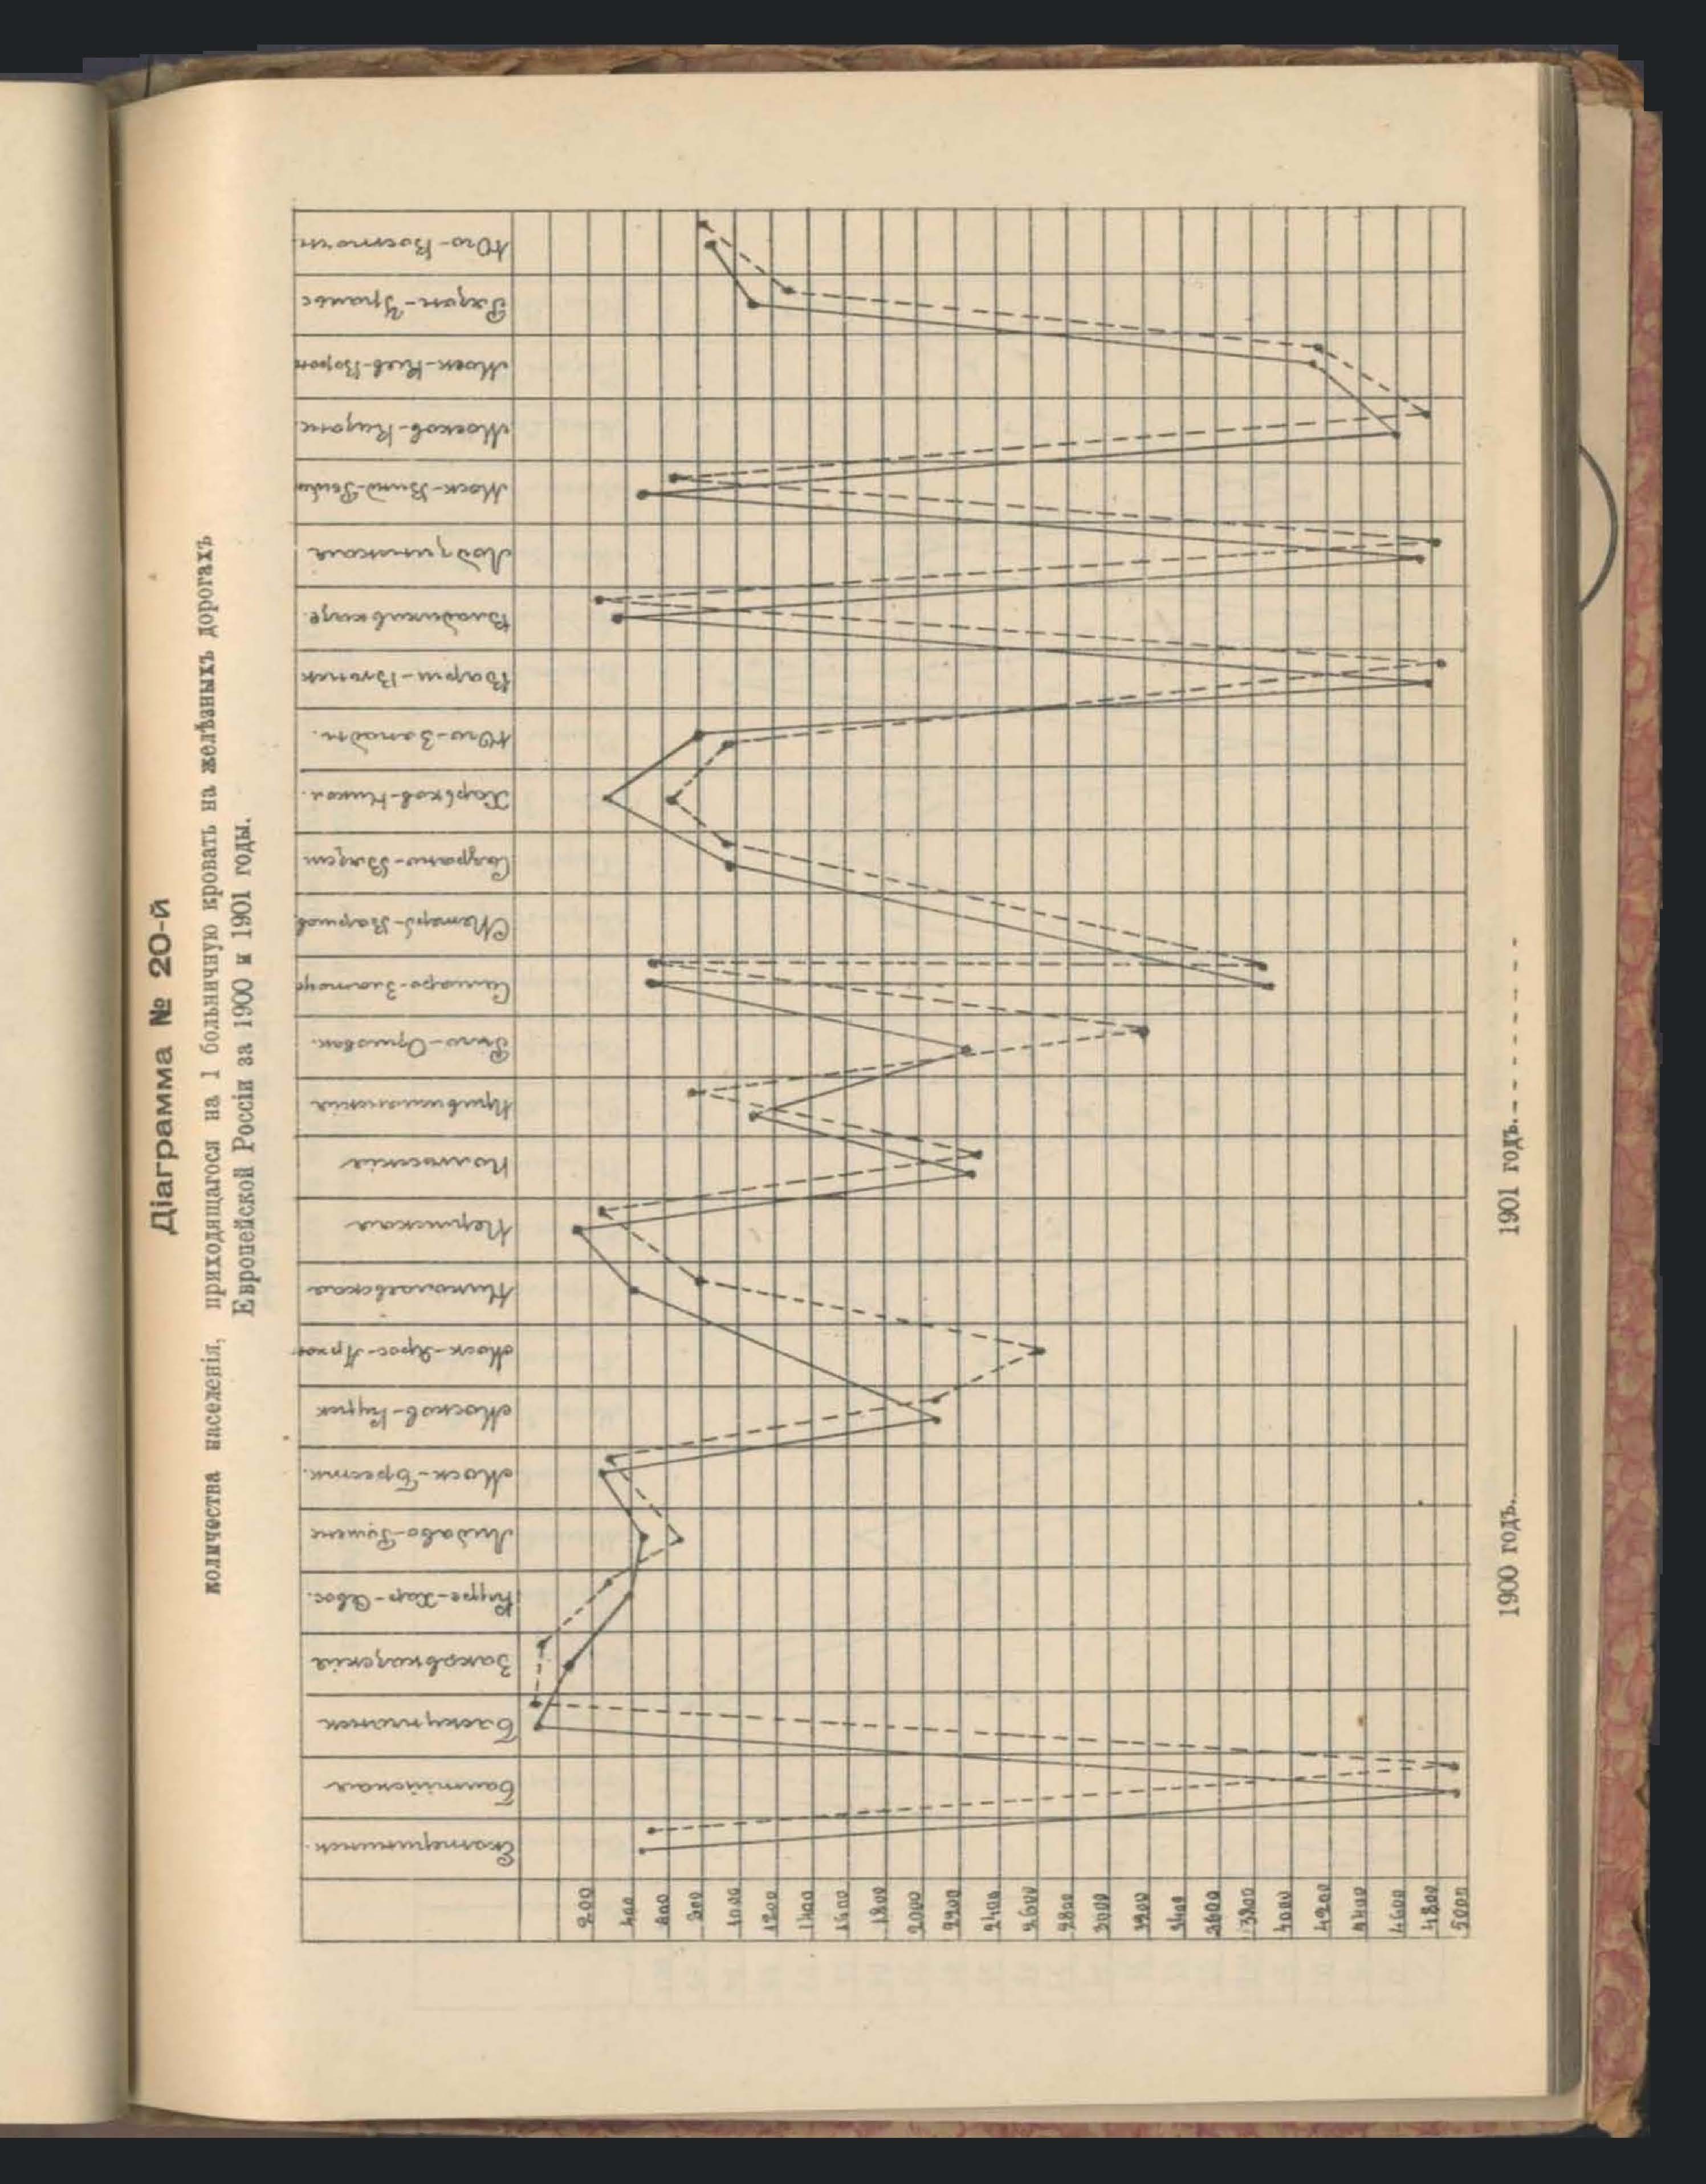 Діаграмма № 20-й
количества населенія, приходящагося на 1 больничную кровать на желѣзныхъ дорогахъ
Европейской Россіи за 1900 и 1901 годы.
Екатеринин.
Балтійская
Баскунчакск
Закавказскія
Курс-Хар-Севас.
Либаво-Роменс
Моск-Брестк.
Москов-Курск
Моск-Яросл-Архан
Николаевская
Пермская
Полѣсскія
Привислинскія
Риго-Орловск.
Самаро-Златоус
СПетерб-Варшав
Сызрано-Вязем
Харьков-Никол.
Юго-Западн.
Варш-Вѣнск
Владикавказ.
Лодзинская
Моск-Винд-Рыбин
Москов-Казанс
Моск-Киев-Ворон
Рязан-Уральс
Юго-Восточн.
200
400
600
800
1000
1200
1400
1600
1800
2000
2200
2400
2600
2800
3000
3200
3400
3600
3800
4000
4200
4400
4600
4800
5000
1900 годъ. 1901 годъ.